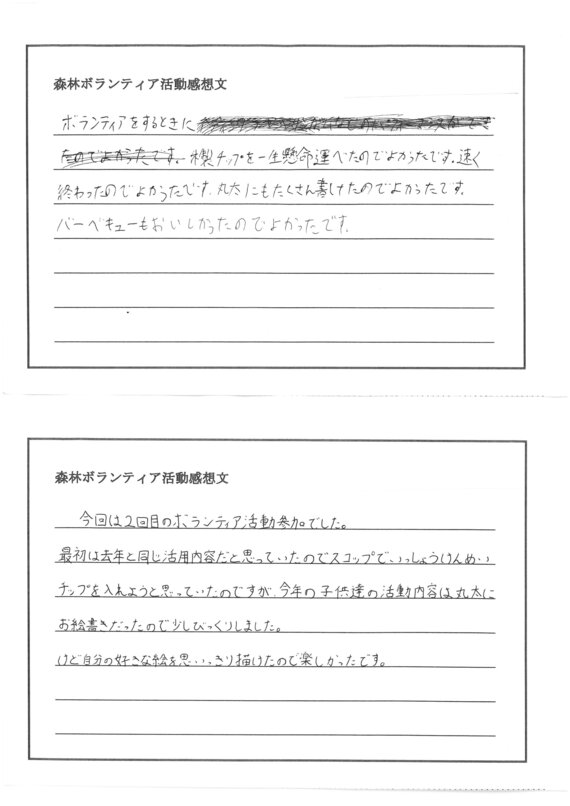 森林ボランティア活動感想文
ボランティアをするときに
木製チップを一生懸命運べたのでよかったです。速く
終わったのでよかったです。丸太にもたくさん書けたのでよかったです。
バーベキューもおいしかったのでよかったです。
森林ボランティア活動感想文
今回は2回目のボランティア活動参加でした。
最初は去年と同じ活用内容だと思っていたのでスコップでいっしょうけんめい
チップを入れようと思っていたのですが、今年の子供達の活動内容は丸太に
お絵書きだったので少しびっくりしました。
けど自分の好きな絵を思いっきり描けたので楽しかったです。